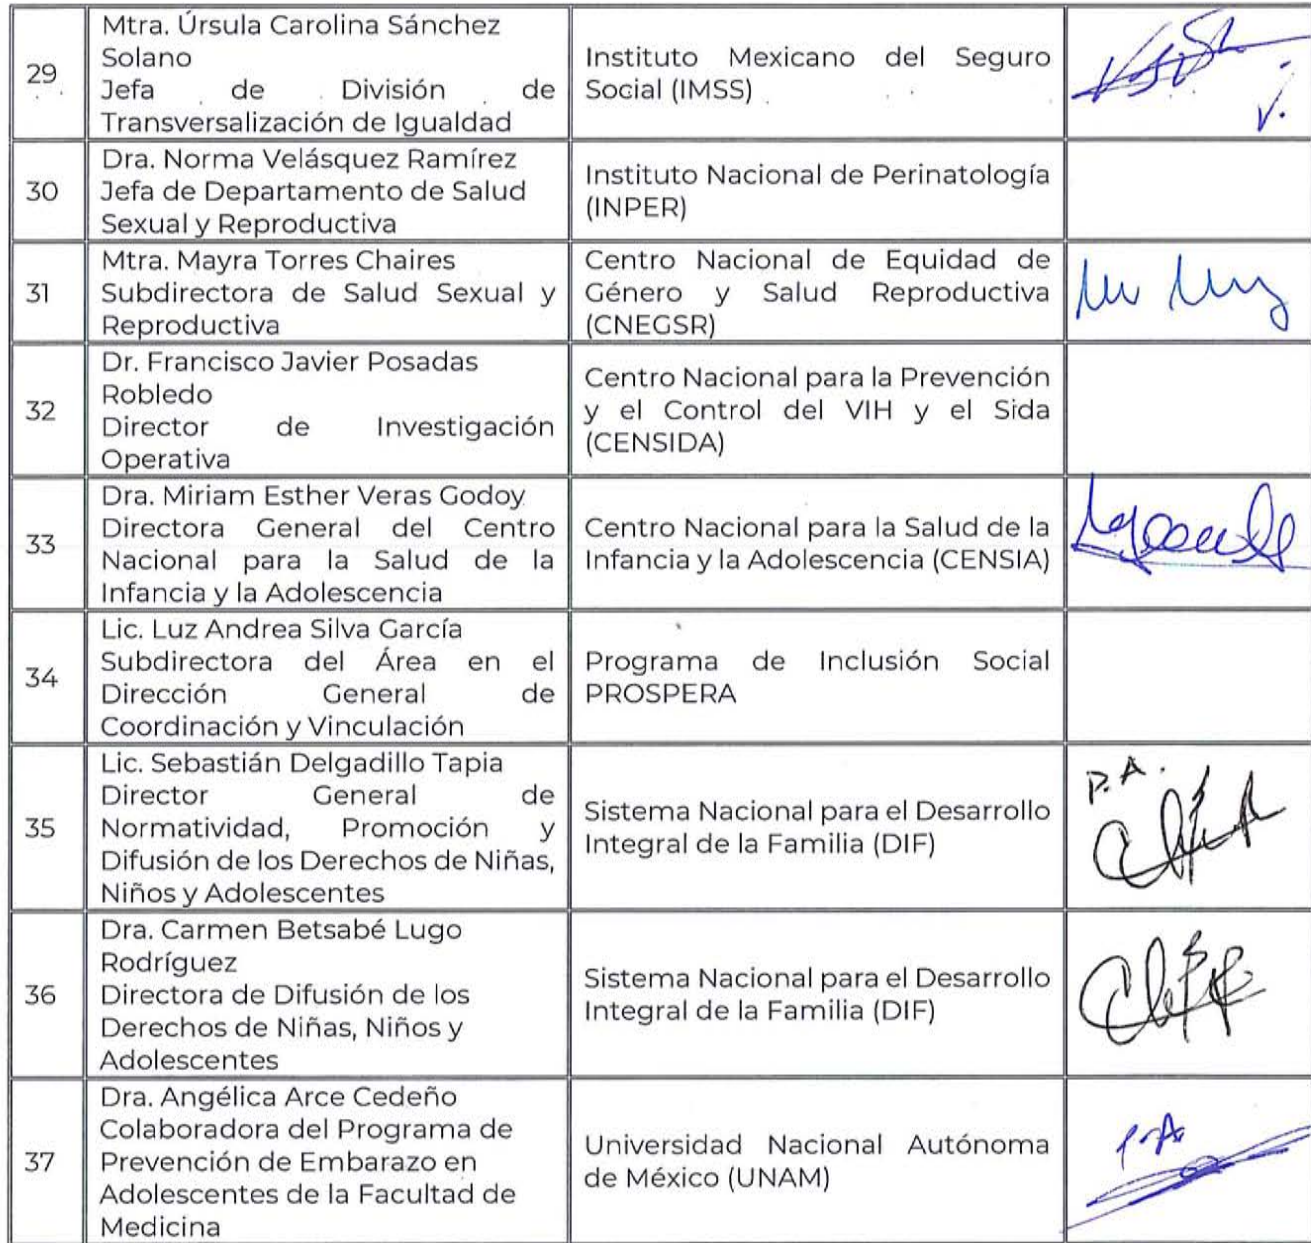 29
Mtra. Úrsula Carolina Sánchez
Solano
Jefa de División de
Transversalización de Igualdad
Instituto Mexicano del Seguro
Social (IMSS)
30
Dra. Norma Velásquez Ramírez
Jefa de Departamento de Salud
Sexual y Reproductiva
Instituto Nacional de Perinatología
(INPER)
31
Mtra. Mayra Torres Chaires
Subdirectora de Salud Sexual y
Reproductiva
Centro Nacional de Equidad de
Género y Salud Reproductiva
(CNEGSR)
32
Dr. Francisco Javier Posadas
Robledo
Director de Investigación
Operativa
Centro Nacional para la Prevención
y el Control del VIH y el Sida
(CENSIDA)
33
Dra. Miriam Esther Veras Godoy
Directora General del Centro
Nacional para la Salud de la
Infancia y la Adolescencia
Centro Nacional para la Salud de la
Infancia y la Adolescencia (CENSIA)
34
Lic. Luz Andrea Silva García
Subdirectora del Área en el
Dirección General de
Coordinación y Vinculación
Programa de Inclusión Social
PROSPERA
35
Lic. Sebastián Delgadillo Tapia
Director General de
Normatividad, Promoción y
Difusión de los Derechos de Niñas,
Niños y Adolescentes
Sistema Nacional para el Desarrollo
Integral de la Familia (DIF)
P.A.
36
Dra. Carmen Betsabé Lugo
Rodríguez
Directora de Difusión de los
Derechos de Niñas, Niños y
Adolescentes
Sistema Nacional para el Desarrollo
Integral de la Familia (DIF)
37
Dra. Angélica Arce Cedeño
Colaboradora del Programa de
Prevención de Embarazo en
Adolescentes de la Facultad de
Medicina
Universidad Nacional Autónoma
de México (UNAM)